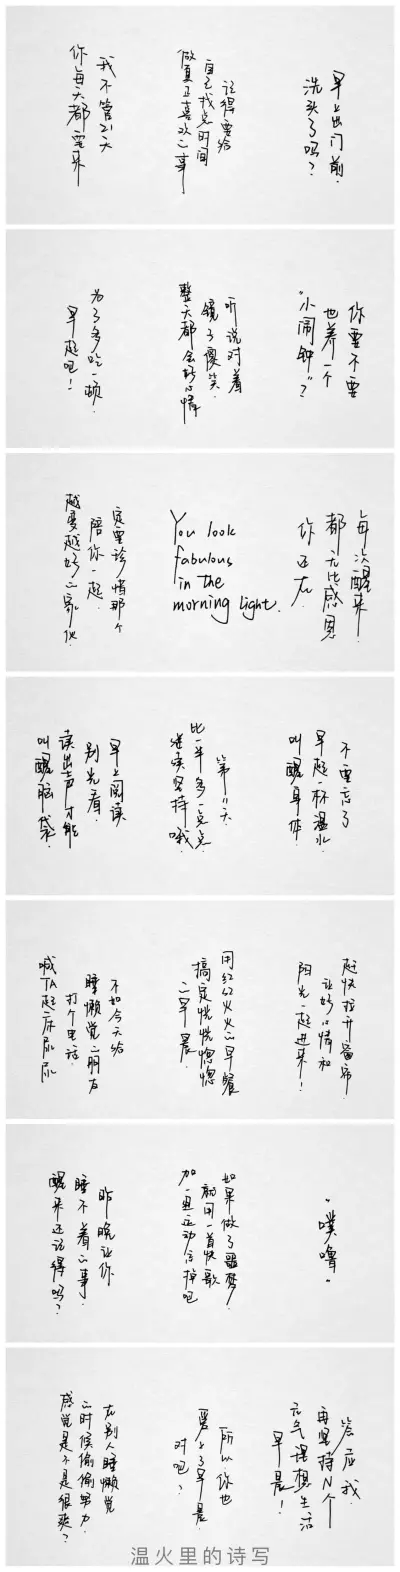 早上出门前.
洗头了吗？
记得要给
自己找点时间
做真正喜欢的事.
我不管21天
你每天都要来
你要不要
也养一个
“小闹钟”？
听说对着
镜子傻笑.
整天都会好心情
为了多吃一顿.
早起吧！
每次醒来.
都无比感恩
你还在.
You look
fabulous
in the
morning light.
一定要珍惜那个
陪你一起.
越变越好的家伙.
不要忘了
早起一杯温水.
叫醒身体.
第11天.
比一半多一点点.
继续坚持哦.
早上阅读
别光看.
读出声才能
叫醒脑袋.
赶快拉开窗帘.
让好心情和
阳光一起进来！
用红红火火的早餐
搞定恍恍惚惚
的早晨.
不如今天给
睡懒觉的朋友
打个电话.
喊TA起床尿尿
“噗噜”
如果做了噩梦.
就用一首快歌
加一点运动忘掉吧
昨晚让你
睡不着的事.
醒来还记得吗？
答应我.
再坚持N个
元气理想生活
早晨！
所以你也
爱上了早晨.
对吧？
在别人睡懒觉
的时候偷偷努力.
感觉是不是很爽？
温火里的诗写